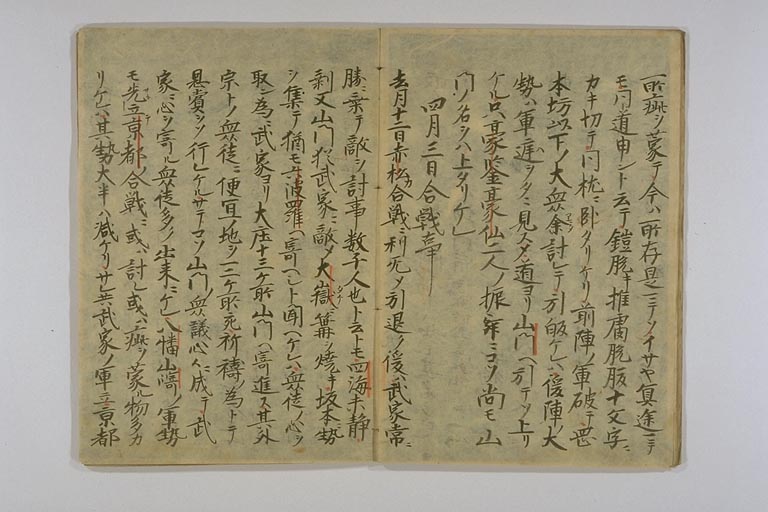 一所疵ヲ蒙テ今ハ所存是ニテソイサヤ冥途ニテ
モ同道申ント云テ鎧脱キ推膚脱腹十文字ニ
カキ切テ同枕ニ卧タリケリ前陣ノ軍破テ
本坊以下ノ大衆余討レテ引皈ケレハ後陣ノ大
勢ハ軍遅シタニ見スメ道ヨリ山門ヘ引テソ上リ
ケル只豪鑒豪仙二人ノ振舞ニコソ尚モ山
門ノ名ヲハ上タリケ
四月三日合戦事
去月十二日赤松合戦ニ利无メ引退ノ後武家常ニ
勝ニ乗テ敵ヲ討事数千人也ト云トモ四海未静
剥又山門猶武家ニ敵メ大嶽ニ篝ヲ焼キ坂本ニ勢
ヲ集テ猶モ六波羅ヘ寄ヘシト聞ヘケレハ衆徒ノ心ヲ
取ン為ニ武家ヨリ大庄十三ケ所山門ヘ寄進ス其外
宗トノ衆徒ニ便宜地ヲ一二ケ所充祈禱ノ為トテ
恩賞ヲソ行ヒケルサテコソ山門ノ衆議心々ニ成テ武
家ニ心ヲ寄ル衆徒多ク出来ニケレ八幡山崎ノ軍勢
モ先立京都ノ合戦ニ或ハ討レ或ハ疵ヲ蒙ル物多カ
リケレハ其勢大半ハ減ケリサレ共武家ノ軍立京都